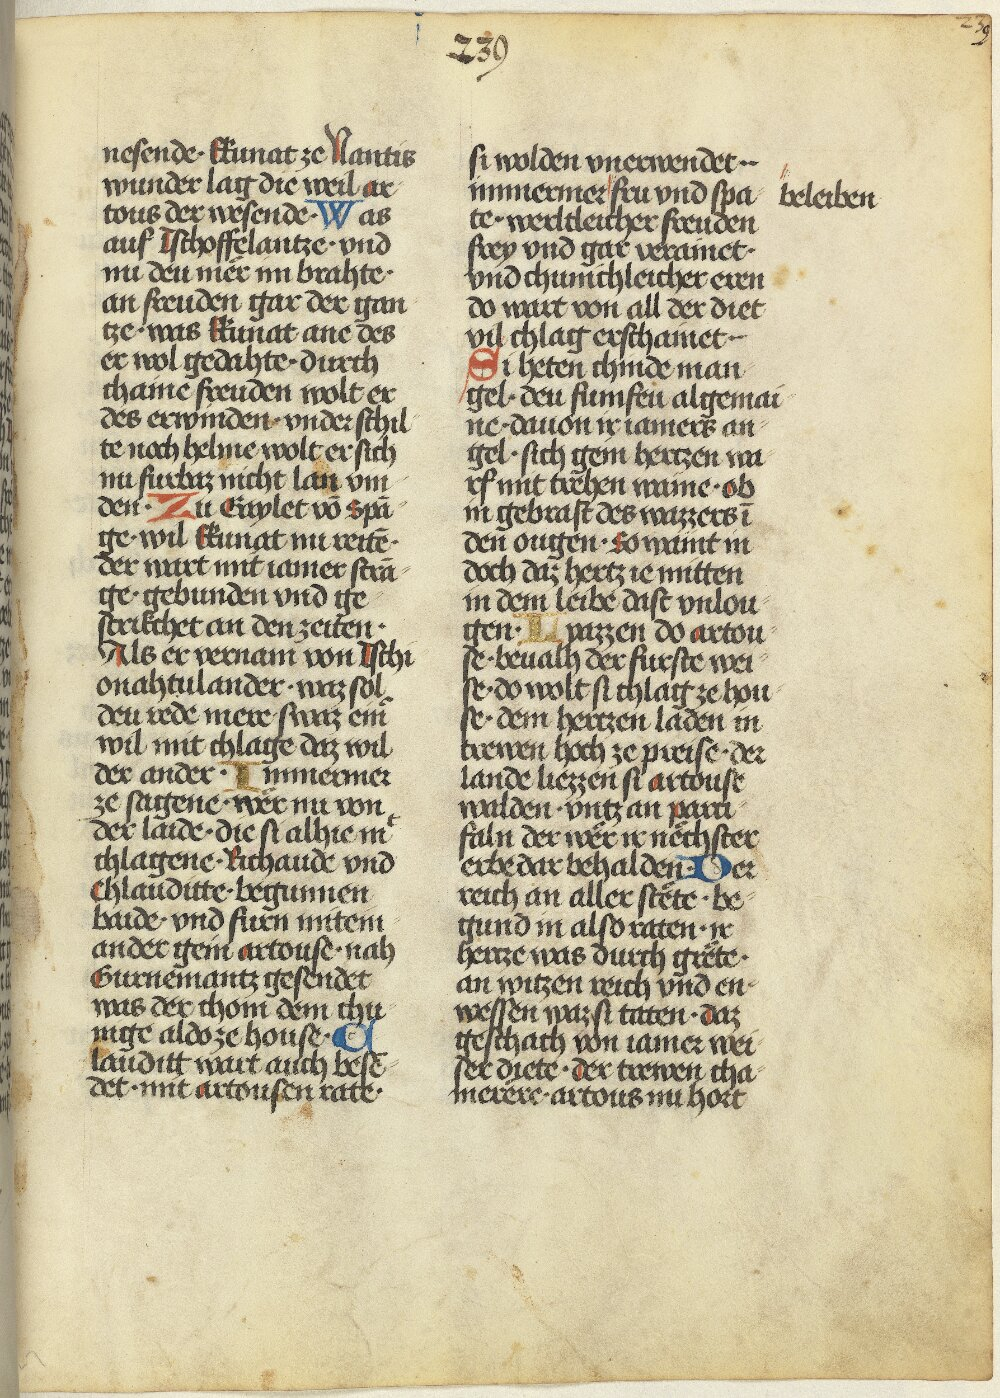 239
239
nesende · Ekunat ze Nantis
wunder lag die weil ar⸗
tous der wesende · Was
auf Tschoffelantze · vnd
nu deu mer̄ im brahte ·
an freuden gar der gan⸗
tze · was Ekunat ane des
er wol gedahte · durch
chaine freuden wolt er
des erwinden · vnder schil⸗
te noch helme wolt er sich
nu furbaz nicht lan vin⸗
den · Zu Gaylet võ spā⸗
ge · wil Ekunat nu reitē ·
der wart mit iamer strā⸗
ge · gebunden vnd ge⸗
strikchet an den zeiten ·
Als er vernam von Tschi⸗
onahtulander · waz sol
deu rede mere swaz einͤ
wil mit chlage daz wil
der ander · Immermer
ze sagene · wer nu von
der laide · die si alhie mͭ
chlagene · Richaude vnd
Chlauditte · begunnen
baide · vnd furn mitein⸗
ander gein artouse · nah
Gurnemantz gesendet
was der chom dem chu⸗
nige aldo ze house · C
lauditt wart auch besē⸗
det · mit artousen rate ·
si wolden vnerwendet ··
immermer fru vnd spa⸗
beleiben
te · werltleicher freuden
frey vnd gar verainet ·
vnd chunichleicher eren
do wart von all der diet
vil chlag erschainet ··
Si heten chinde man⸗
gel · deu fumfeu algemai⸗
ne · dauon ir iamers an⸗
gel · sich gein hertzen wa⸗
rf mit trehen waine · ob
in gebrast des wazzers ī
den ougen · so waint in
doch daz hertz ie mitten
in dem leibe dast vnlou⸗
gen · Lyazzen do artou⸗
se · beualh der furste wei⸗
se · do wolt si chlag ze hou⸗
se · dem hertzen laden in
trewen hoch ze preise · der
lande liezzen si artouse
walden · vntz an parci⸗
faln der wer ir nechster
erbe dar behalden · Der
reich an aller stete · be⸗
gund in also raten · ir
hertze was durch grete ·
an witzen reich vnd en⸗
wessen waz si taten · daz
geschach von iamer wei⸗
ser diete · der trewen cha⸗
merere · artous nu hort